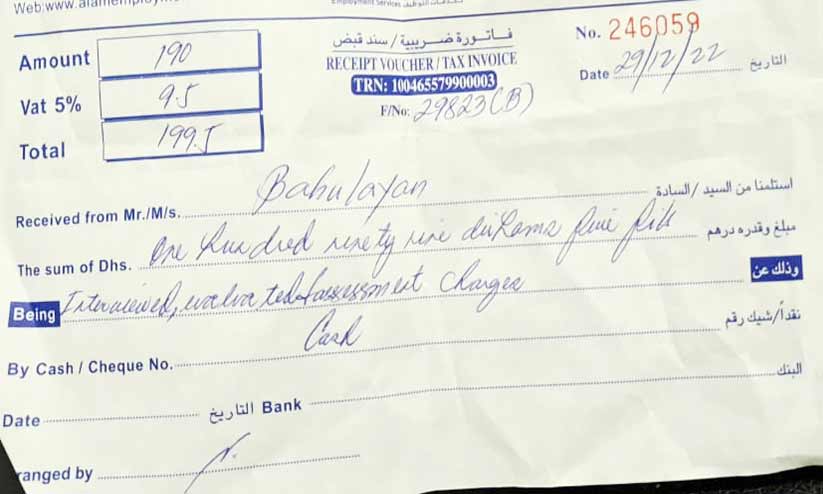 Web:www.
Employment Services
Amount 190
Vat 5% 9.5
Total 199.5
فاتورة ضريبية / سند قبض
RECEIPT VOUCHER / TAX INVOICE
TRN: 100465579900003
F/No: 29823(B)
No. 246059
Date 29/12/22 التاريخ
Received from Mr./M/s. Bahulayan استلمنا من السيد / السادة
The sum of Dhs. One hundred ninety nine dirhams five fils مبلغ وقدره درهم
Being Interviewed, evaluated & assessment Charges وذلك عن
By Cash / Cheque No. Cash نقداً/شيك رقم
Date التاريخ Bank البنك
ranged by